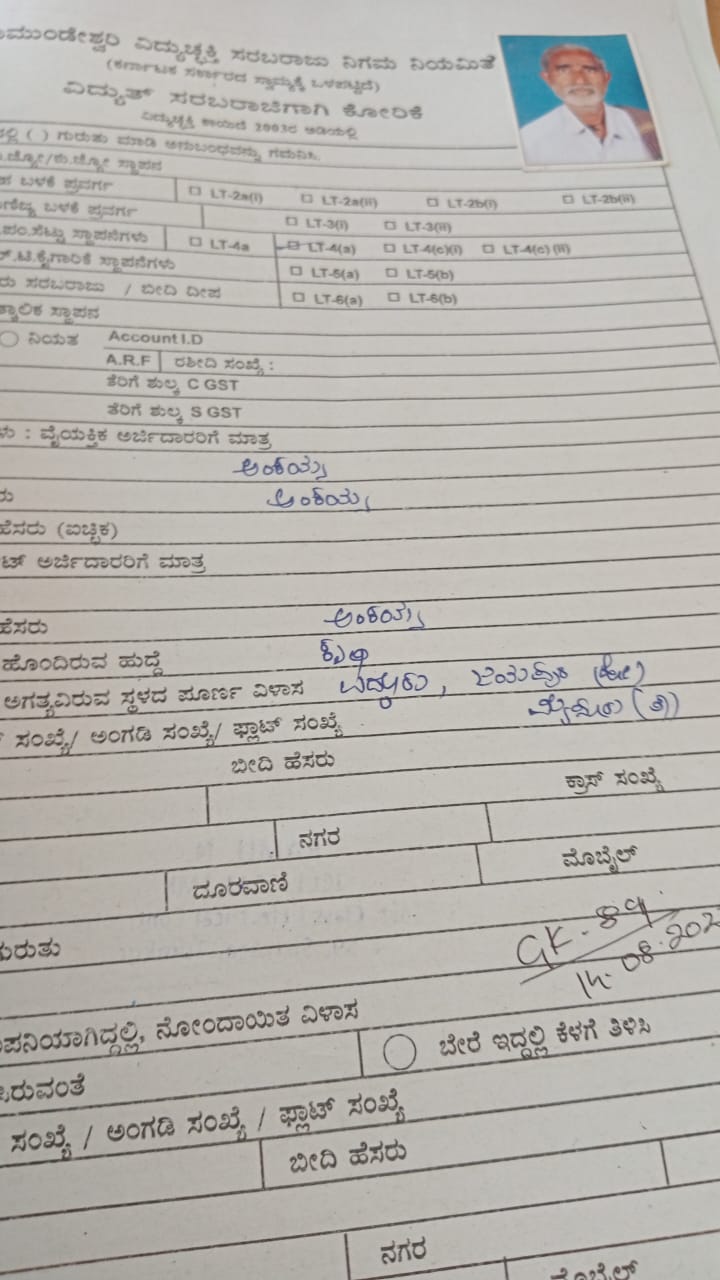 ಮುಂಡೇಶ್ವರಿ ವಿದ್ಯುಚ್ಛಕ್ತಿ ಸರಬರಾಜು ನಿಗಮ ನಿಯಮಿತ
(ಕರ್ನಾಟಕ ಸರ್ಕಾರದ ಸ್ವಾಮ್ಯಕ್ಕೆ ಒಳಪಟ್ಟಿದೆ)
ವಿದ್ಯುತ್ ಸರಬರಾಜಿಗಾಗಿ ಕೋರಿಕೆ
ವಿದ್ಯುಚ್ಛಕ್ತಿ ಕಾಯಿದೆ 2003ರ ಅಡಿಯಲ್ಲಿ
ಲ್ಲಿ ( ) ಗುರುತು ಮಾಡಿ ಅನುಬಂಧವನ್ನು ಗಮನಿಸಿ.
ಬಳಕೆ ಪ್ರವರ್ಗ LT-2a(i) LT-2a(ii) LT-2b(i) LT-2b(ii)
ಬಳಕೆ ಪ್ರವರ್ಗ LT-3(i) LT-3(ii)
ಪಂ.ಸೆಟ್ಟು ಸ್ಥಾಪನೆಗಳು LT-4a LT-4(a) LT-4(c)(i) LT-4(c)(ii)
ಟಿ.ಕೈಗಾರಿಕೆ ಸ್ಥಾಪನೆಗಳು LT-5(a) LT-5(b)
ರು ಸರಬರಾಜು / ಬೀದಿ ದೀಪ LT-6(a) LT-6(b)
ತ್ಕಾಲಿಕ ಸ್ಥಾಪನ
ನಿಯತ Account I.D
A.R.F ರಶೀದಿ ಸಂಖ್ಯೆ :
ತೆರಿಗೆ ಶುಲ್ಕ C GST
ತೆರಿಗೆ ಶುಲ್ಕ S GST
ಳು : ವೈಯಕ್ತಿಕ ಅರ್ಜಿದಾರರಿಗೆ ಮಾತ್ರ
ಅಂಕಯ್ಯ
ರು ಅಂಕಯ್ಯ
ಹೆಸರು (ಐಚ್ಛಿಕ)
ಟ್ ಅರ್ಜಿದಾರರಿಗೆ ಮಾತ್ರ
ಹೆಸರು ಅಂಕಯ್ಯ
ಹೊಂದಿರುವ ಹುದ್ದೆ ಕೃಷಿ
ಅಗತ್ಯವಿರುವ ಸ್ಥಳದ ಪೂರ್ಣ ವಿಳಾಸ , ಜಯಪುರ (ಹೋ)
ಮೈಸೂರು (ತಾ)
ಸಂಖ್ಯೆ/ ಅಂಗಡಿ ಸಂಖ್ಯೆ/ ಫ್ಲಾಟ್ ಸಂಖ್ಯೆ
ಬೀದಿ ಹೆಸರು
ಕ್ರಾಸ್ ಸಂಖ್ಯೆ
ನಗರ
ಮೊಬೈಲ್
ದೂರವಾಣಿ
ಗುರುತು
GK-89
14.08.202
ಪನಿಯಾಗಿದ್ದಲ್ಲಿ, ನೋಂದಾಯಿತ ವಿಳಾಸ
ರುವಂತೆ ಬೇರೆ ಇದ್ದಲ್ಲಿ ಕೆಳಗೆ ತಿಳಿಸಿ
ಸಂಖ್ಯೆ / ಅಂಗಡಿ ಸಂಖ್ಯೆ / ಫ್ಲಾಟ್ ಸಂಖ್ಯೆ
ಬೀದಿ ಹೆಸರು
ನಗರ
ಮೊಬೈಲ್